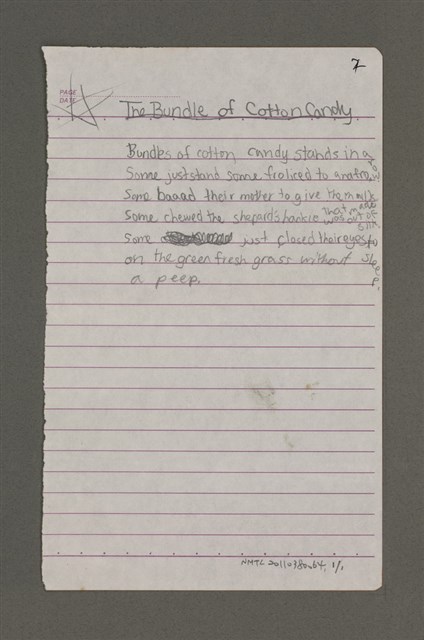 7
PAGE
DATE
The Bundle of Cotton Candy
Bundles of cotton candy stands in a row.
Some just stand some froliced to
Some baaad their mother to give them milk
Some chewed the shepard's hankie that was made out of silk.
Some just closed their eyes to sleep.
on the green fresh grass without
a peep.
NMTL 20110380064, 1/1